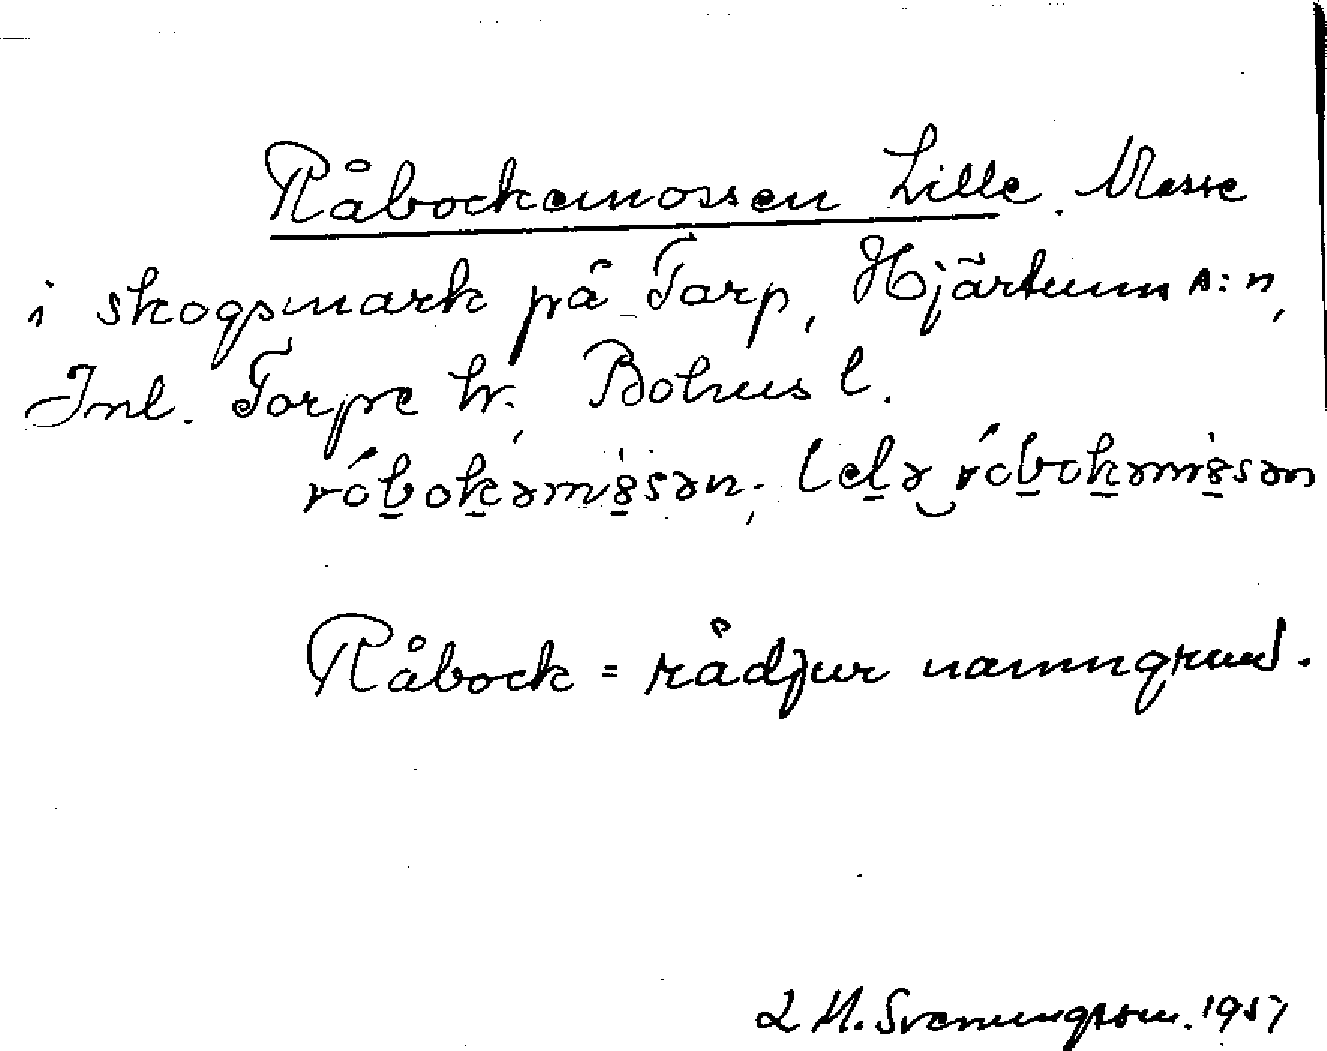 Råbockemossen Lille. Mosse
i skogsmark på Torp, Hjärtum s:n,
Inl. Torpe hr, Bohus l.
róbokəmꝏ̀sən; lelə róbokəmꝏ̀sən
Råbock = rådjur namngrund.
L M. Svenungsson. 1957